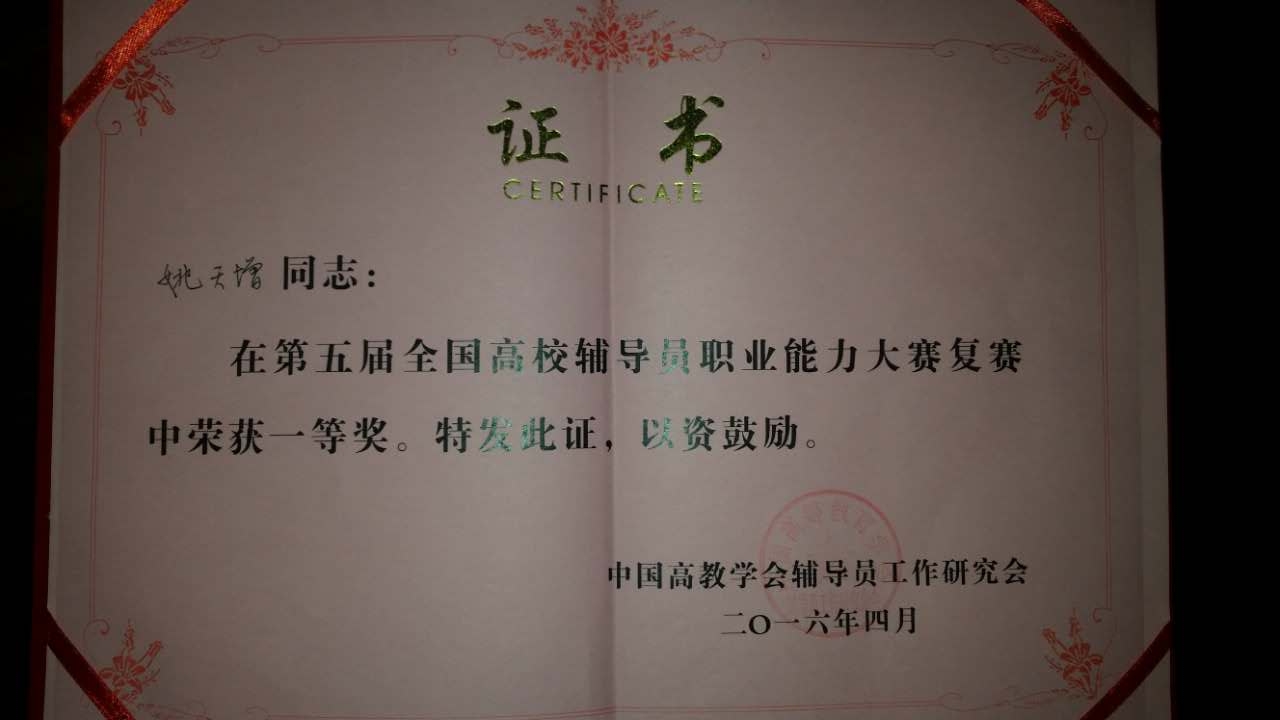 证 书
CERTIFICATE
姚天增 同志：
在第五届全国高校辅导员职业能力大赛复赛
中荣获一等奖。特发此证，以资鼓励。
中国高教学会辅导员工作研究会
二〇一六年四月